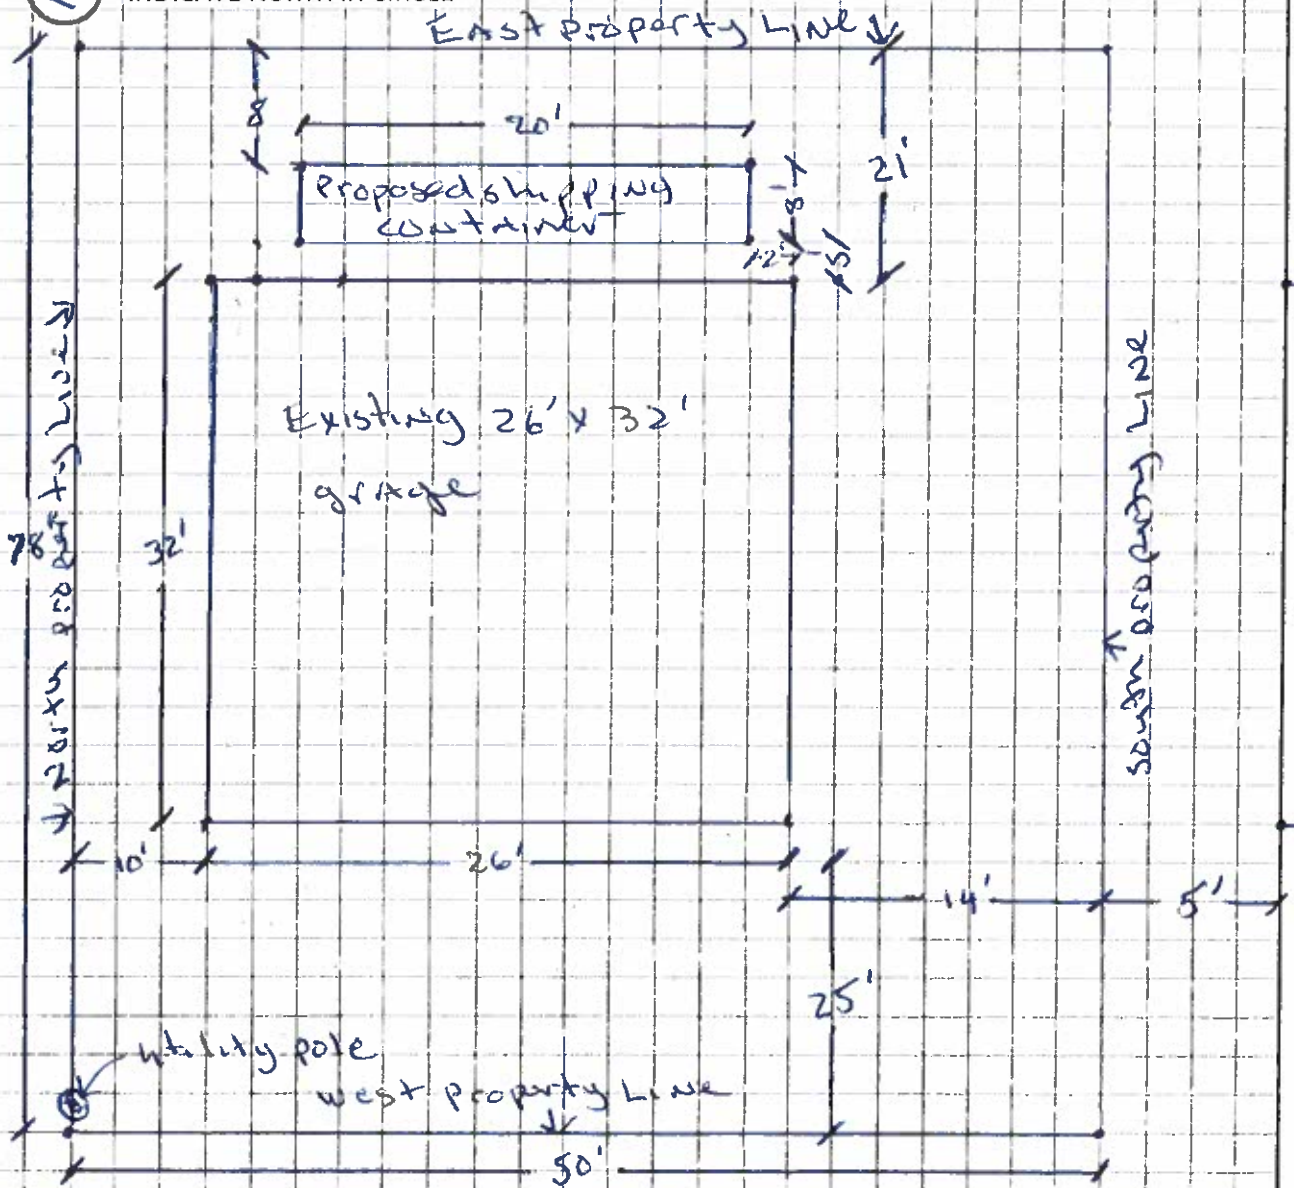 East property Line
8
20'
21'
Proposed shipping
container
8'
2'
5'
North property Line
South property Line
Existing 26' x 32'
grage
78'
32'
10'
26'
14'
5'
25'
utility pole
west property Line
50'